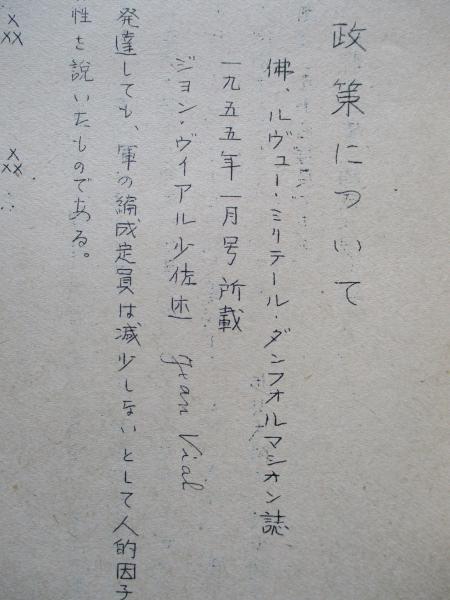 政策について
佛、ルヴュー・ミリテール・ダンフォルマシオン誌
一九五五年一月号所載
ジョン・ヴィアル少佐述 Jean Vial
発達しても、軍の編成定員は減少しないとして人的因子
性を説いたものである。
x xx x xx